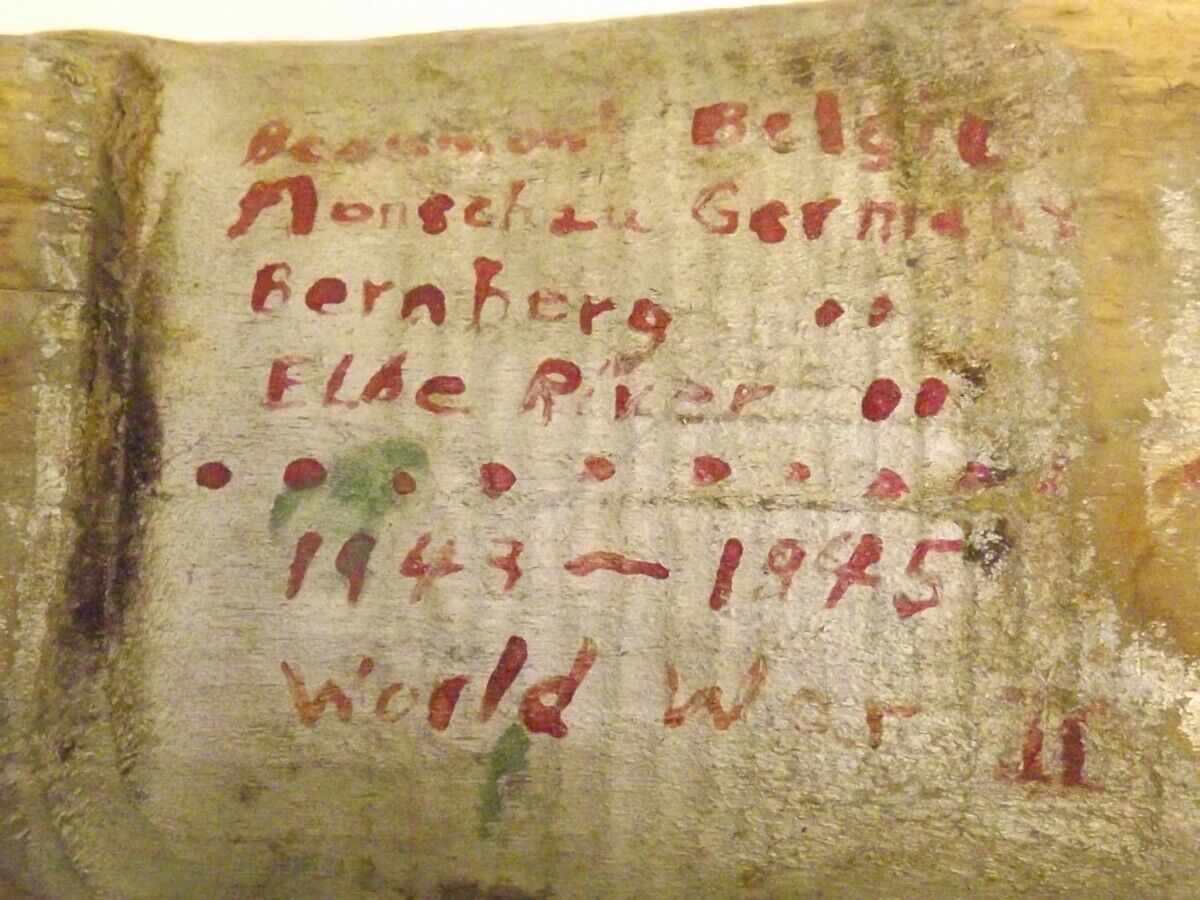 Beaumont Belgie
Monschau Germany
Bernberg ..
Elbe River ..
. . . . . . . . . .
1943 - 1945
World War II